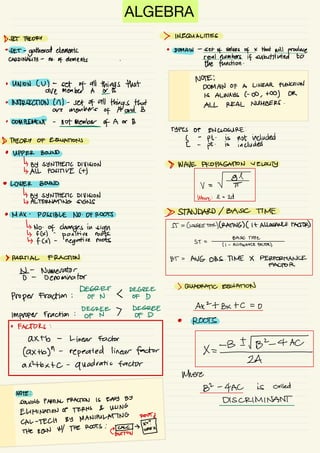 ALGEBRA
SET THEORY
• SET - gathered elements
CARDINALITY - no. of elements
• UNION (U) - set of all things that
are member A or B
• INTERSECTION (∩) - set of all things that
are members of A and B
• COMPLEMENT - not member of A or B
THEORY OF EQUATIONS
• UPPER BOUND
↳ BY SYNTHETIC DIVISION
↳ ALL POSITIVE (+)
• LOWER BOUND
↳ BY SYNTHETIC DIVISION
↳ ALTERNATING SIGNS
• MAX. POSSIBLE NO. OF ROOTS
↳ No. of changes in sign
↳ f(x) - positive roots
↳ f(-x) - negative roots
PARTIAL FRACTION
N - Numerator
D - Denominator
Proper Fraction : DEGREE OF N < DEGREE OF D
Improper Fraction : DEGREE OF N > DEGREE OF D
• FACTORS :
ax+b - Linear factor
(ax+b)ⁿ - repeated linear factor
ax²+bx+c - quadratic factor
NOTE:
SOLVING PARTIAL FRACTION IS EASY BY
ELIMINATION OF TERMS & USING
CAL-TECH BY MANIPULATING
THE EQN W/ THE ROOTS :
CALC →
BUTTON
ROOTS
INEQUALITIES
• DOMAIN - set of values of x that will produce
real numbers if substituted to
the function.
NOTE:
DOMAIN OF A LINEAR FUNCTION
IS ALWAYS (-∞, +∞) OR
ALL REAL NUMBERS.
TYPES OF ENCLOSURE
( - pt. is not included
[ - pt. is included
WAVE PROPAGATION VELOCITY
STANDARD / BASIC TIME
ST = (OBSERVED TIME)(RATING)(1+ ALLOWANCE FACTOR)
ST = BASIC TIME / (1 - ALLOWANCE FACTOR)
BT = AVG OBS TIME X PERFORMANCE
FACTOR
QUADRATIC EQUATION
Ax² + Bx + C = 0
• ROOTS
X = -B ± √B² - 4AC / 2A
Where
B² - 4AC is called
DISCRIMINANT